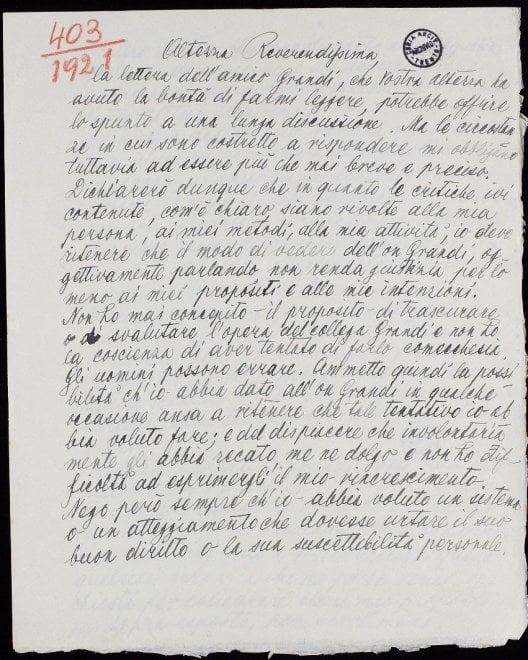 403
1921
Altezza Reverendissima,
La lettera dell'amico Grandi, che Vostra altezza ha
avuto la bontà di farmi leggere, potrebbe offrire
lo spunto a una lunga discussione. Ma le circostan
ze in cui sono costretto a rispondere mi obbligano
tuttavia ad essere più che mai breve e preciso.
Dichiarerò dunque che in quanto le critiche ivi
contenute, com'è chiaro, siano rivolte alla mia
persona, ai miei metodi, alla mia attività, io devo
ritenere che il modo di vedere dell'on Grandi, og
gettivamente parlando non renda giustizia per lo
meno ai miei propositi e alle mie intenzioni.
Non ho mai concepito il proposito di trascurare
o di svalutare l'opera del collega Grandi e non ho
la coscienza di aver tentato di farlo comecchesia.
Gli uomini possono errare. Ammetto quindi la possi
bilità ch'io abbia dato all'on Grandi in qualche
occasione ansa a ritenere che tale tentativo io ab
bia voluto fare; e del dispiacere che involontaria
mente gli abbia recato me ne dolgo e non ho dif
ficoltà ad esprimergli il mio rincrescimento.
Nego però sempre ch'io abbia voluto un sistema
o un atteggiamento che dovesse urtare il suo
buon diritto o la sua suscettibilità personale.